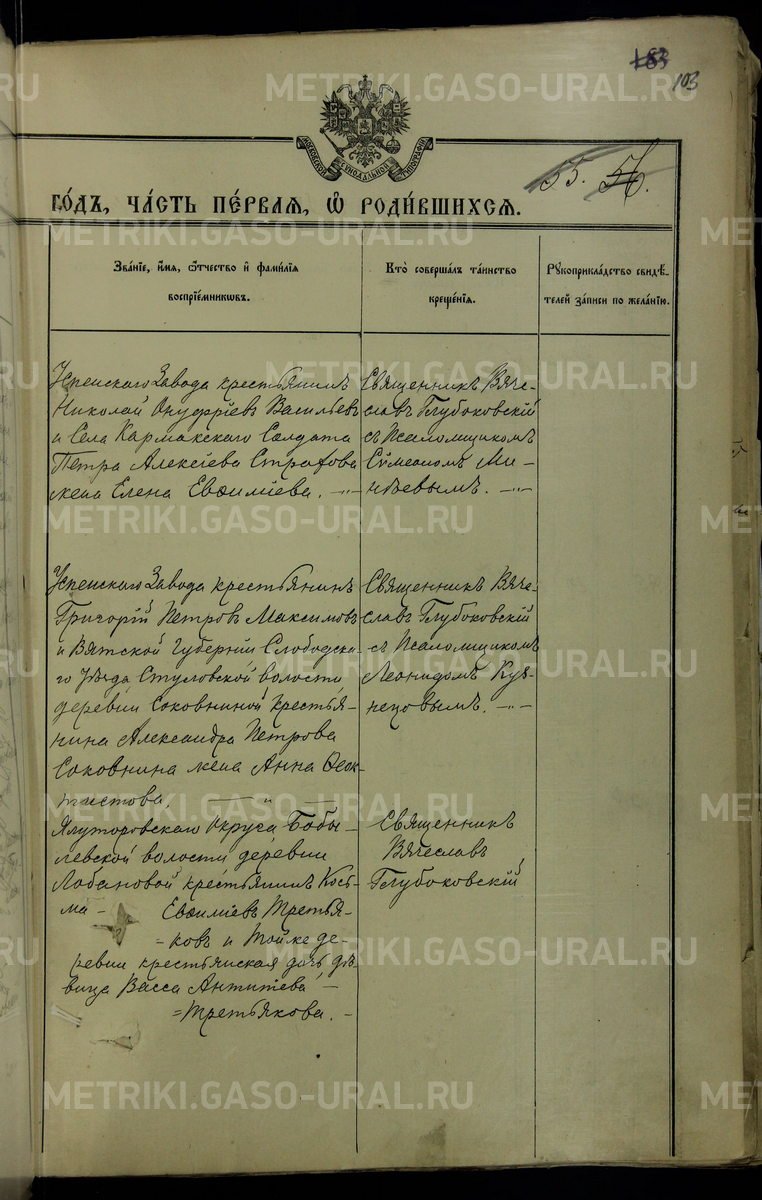 183
103
МОСКОВСКОЙ СѴНОДАЛЬНОЙ ТИПОГРАФІИ
55. 56.
ГО́ДЪ, ЧА́СТЬ ПЕ́РВАѦ, Ѡ҆ РОДИ́ВШИХСѦ.
Зва́нїе, и҆́мѧ, ѻ҆́тчество и҆ фами́лїѧ
воспрїе́мникѡвъ.
Кто̀ соверша́лъ та́инство
креще́нїѧ.
Рꙋкоприкла́дство свидѣ́-
телей за́писи по жела́нїю.
Успенскаго Завода крестьянинъ
Николай Онуфріевъ Васильевъ
и Села Кармакскаго Солдата
Петра Алексіева Страфова
жена Елена Евѳиміева. —〃—
Священникъ Вяче-
славъ Глубоковскій
съ Псаломщикомъ
Сѵмеономъ Ми-
нѣевымъ. —〃—
Успенскаго Завода крестьянинъ
Григорій Петровъ Максимовъ
и Вятской Губерніи Слободска-
го Уѣзда Стуловской волости
деревни Соковниной Крестья-
нина Александра Петрова
Соковнина жена Анна Ѳеок-
тистова. —〃—
Священникъ Вяче-
славъ Глубоковскій
съ Псаломщикомъ
Леонидомъ Куз-
нецовымъ. —〃—
Ялуторовскаго Округа Бобы-
левской волости деревни
Лобановой крестьянинъ Косъ-
ма - Евѳиміевъ Третья-
=ковъ и Тойже де-
ревни крестьянская дочь, дѣ-
вица Васса Антипева -
=Третьякова. -
Священникъ
Вячеславъ
Глубоковскій
METRIKI.GASO-URAL.RU